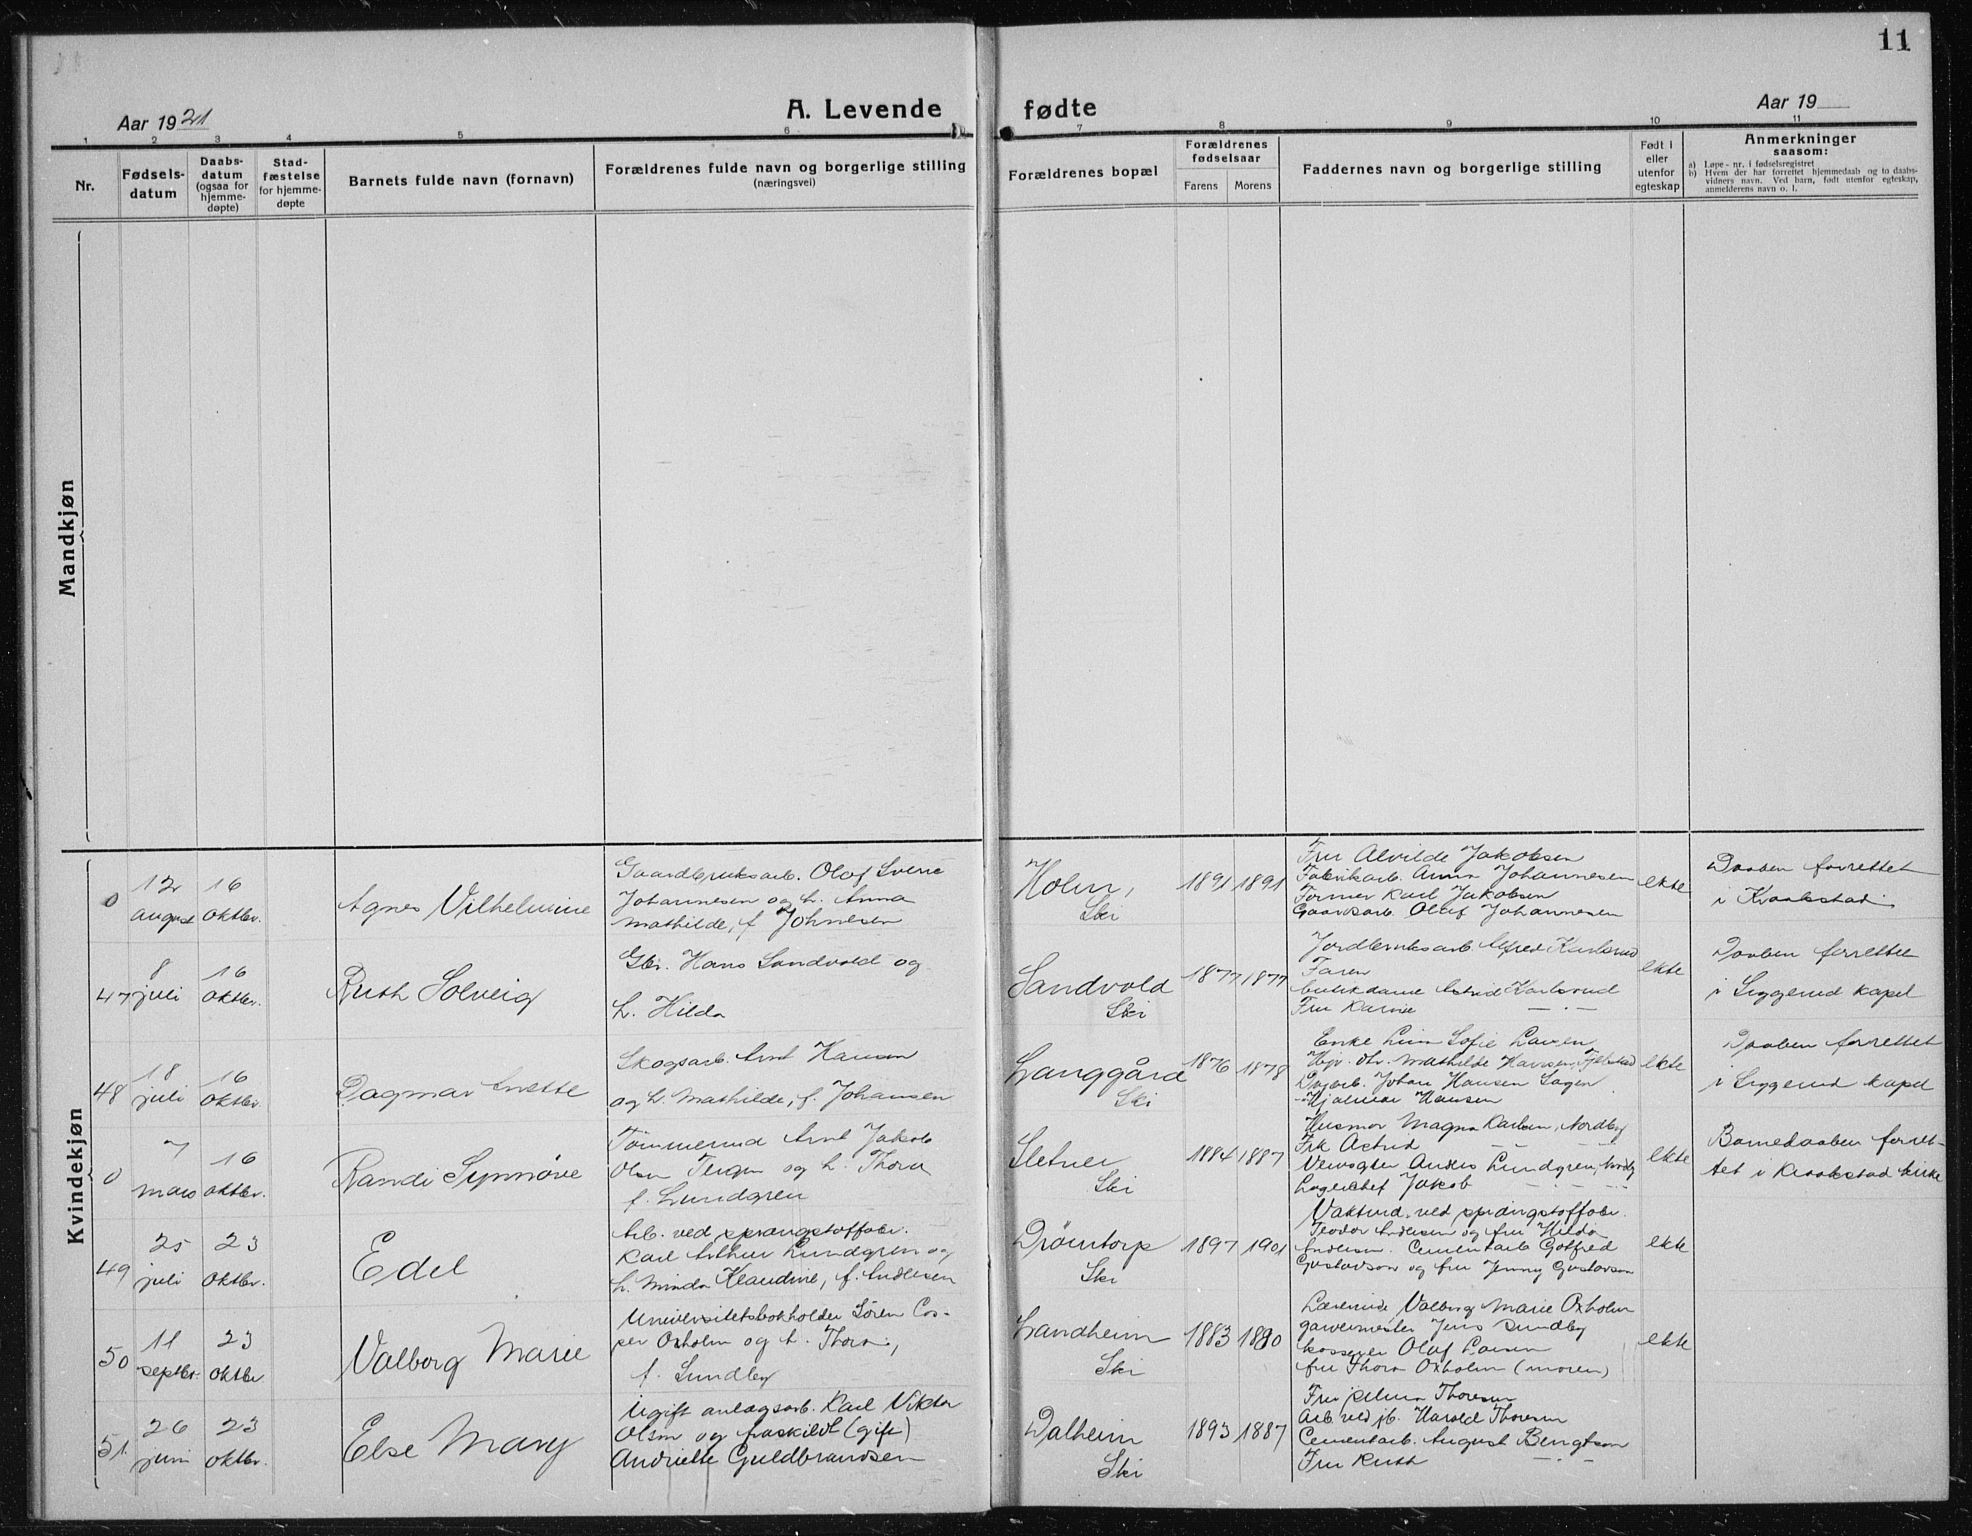 11
Aar 1921
A. Levende
fødte
Aar 19
1 2 3 4 5 6 7 8 9 10 11
Nr.
Fødsels-
datum
Daabs-
datum
(ogsaa for
hjemme-
døpte)
Stad-
fæstelse
for hjemme-
døpte
Barnets fulde navn (fornavn)
Forældrenes fulde navn og borgerlige stilling
(næringsvei)
Forældrenes bopæl
Forældrenes
fødselsaar
Farens
Morens
Faddernes navn og borgerlige stilling
Født i
eller
utenfor
egteskap
Anmerkninger
saasom:
a) Løpe-nr. i fødselsregistret
b) Hvem der har forrettet hjemmedaab og to daabs-
vidners navn. Ved barn, født utenfor egteskap,
anmelderens navn o. l.
Mandkjøn
Kvindekjøn
0
12
august
16
oktbr.
Agnes Vilhelmine
Gaardbruksarb. Olaf Sverre
Johannesen og h. Anna
Mathilde, f. Johnesen
Holm,
Ski
1891 1891
Fru Alvilde Jakobsen
Fabrikarb. Anna Johannesen
Former Karl Jakobsen
Gaardsarb. Olaf Johannesen
ekte
Daaben forrettet
i Kraakstad
47
8
juli
16
oktbr.
Ruth Solveig
Gbr. Hans Sandvold og
h. Hilda
Sandvold
Ski
1877 1877
Jordbruksarb Alfred Karlsrud
Faren
butikdame Astrid Karlsrud
Fru
ekte
Daaben forrettet
i Siggerud kapel
48
18
juli
16
oktbr.
Dagmar Anette
Skogsarb. Arnt Hansen
og h. Mathilde, f. Johansen
Langgård
Ski
1876 1878
Enke Sofie
Mathilde Hansen,
Johan Hansen
Hjalmar Hansen
ekte
Daaben forrettet
i Siggerud kapel
0
7
mars
16
oktbr.
Randi Synnøve
Tømmermd Arnt Jakob
Olsen og h. Thora
f. Lundgren
Sletner
Ski
1884 1887
Husmor Magna Karlsen, Nordby
Frk Astrid — — —
Anders Lundgren, Nordby
Jakob — — —
ekte
Barnedaaben forret-
tet i Kraakstad kirke
49
25
juli
23
oktbr.
Edel
Arb. ved sprængstoffabr.
Karl Arthur Lundgren og
h. Minda Klaudine, f. Andersen
Drömtorp
Ski
1897 1901
ved sprængstoffabr.
Teodor Andersen og fru Hilda
Andersen. Cementarb Gotfred
Gustavson og fru Jenny Gustavson
ekte
50
11
septbr.
23
oktbr
Valborg Marie
Universitetsbokholder Søren Cas-
per Oxholm og h. Thora,
f. Sundby
Landheim
Ski
1883 1880
Lærerinde Valborg Marie Oxholm
garvermester Jens Sundby
kasserer Olaf Larsen
fru Thora Oxholm (moren)
ekte
51.
26
juni
23
oktbr.
Else Mary
Ugift anlægsarb. Karl Viktor
Olsen og fraskildt (gift)
Andriette Guldbrandsen
Dalheim
Ski
1893 1887
Fru Thoresen
Arb. ved jb. Harald Thoresen
Cementarb. August Bengtson
Fru Ruth — . —